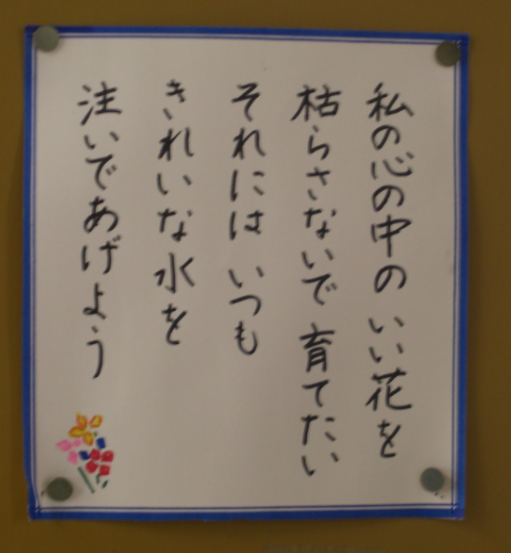 私の心の中の いい花を
枯らさないで 育てたい
それには いつも
きれいな水を
注いであげよう